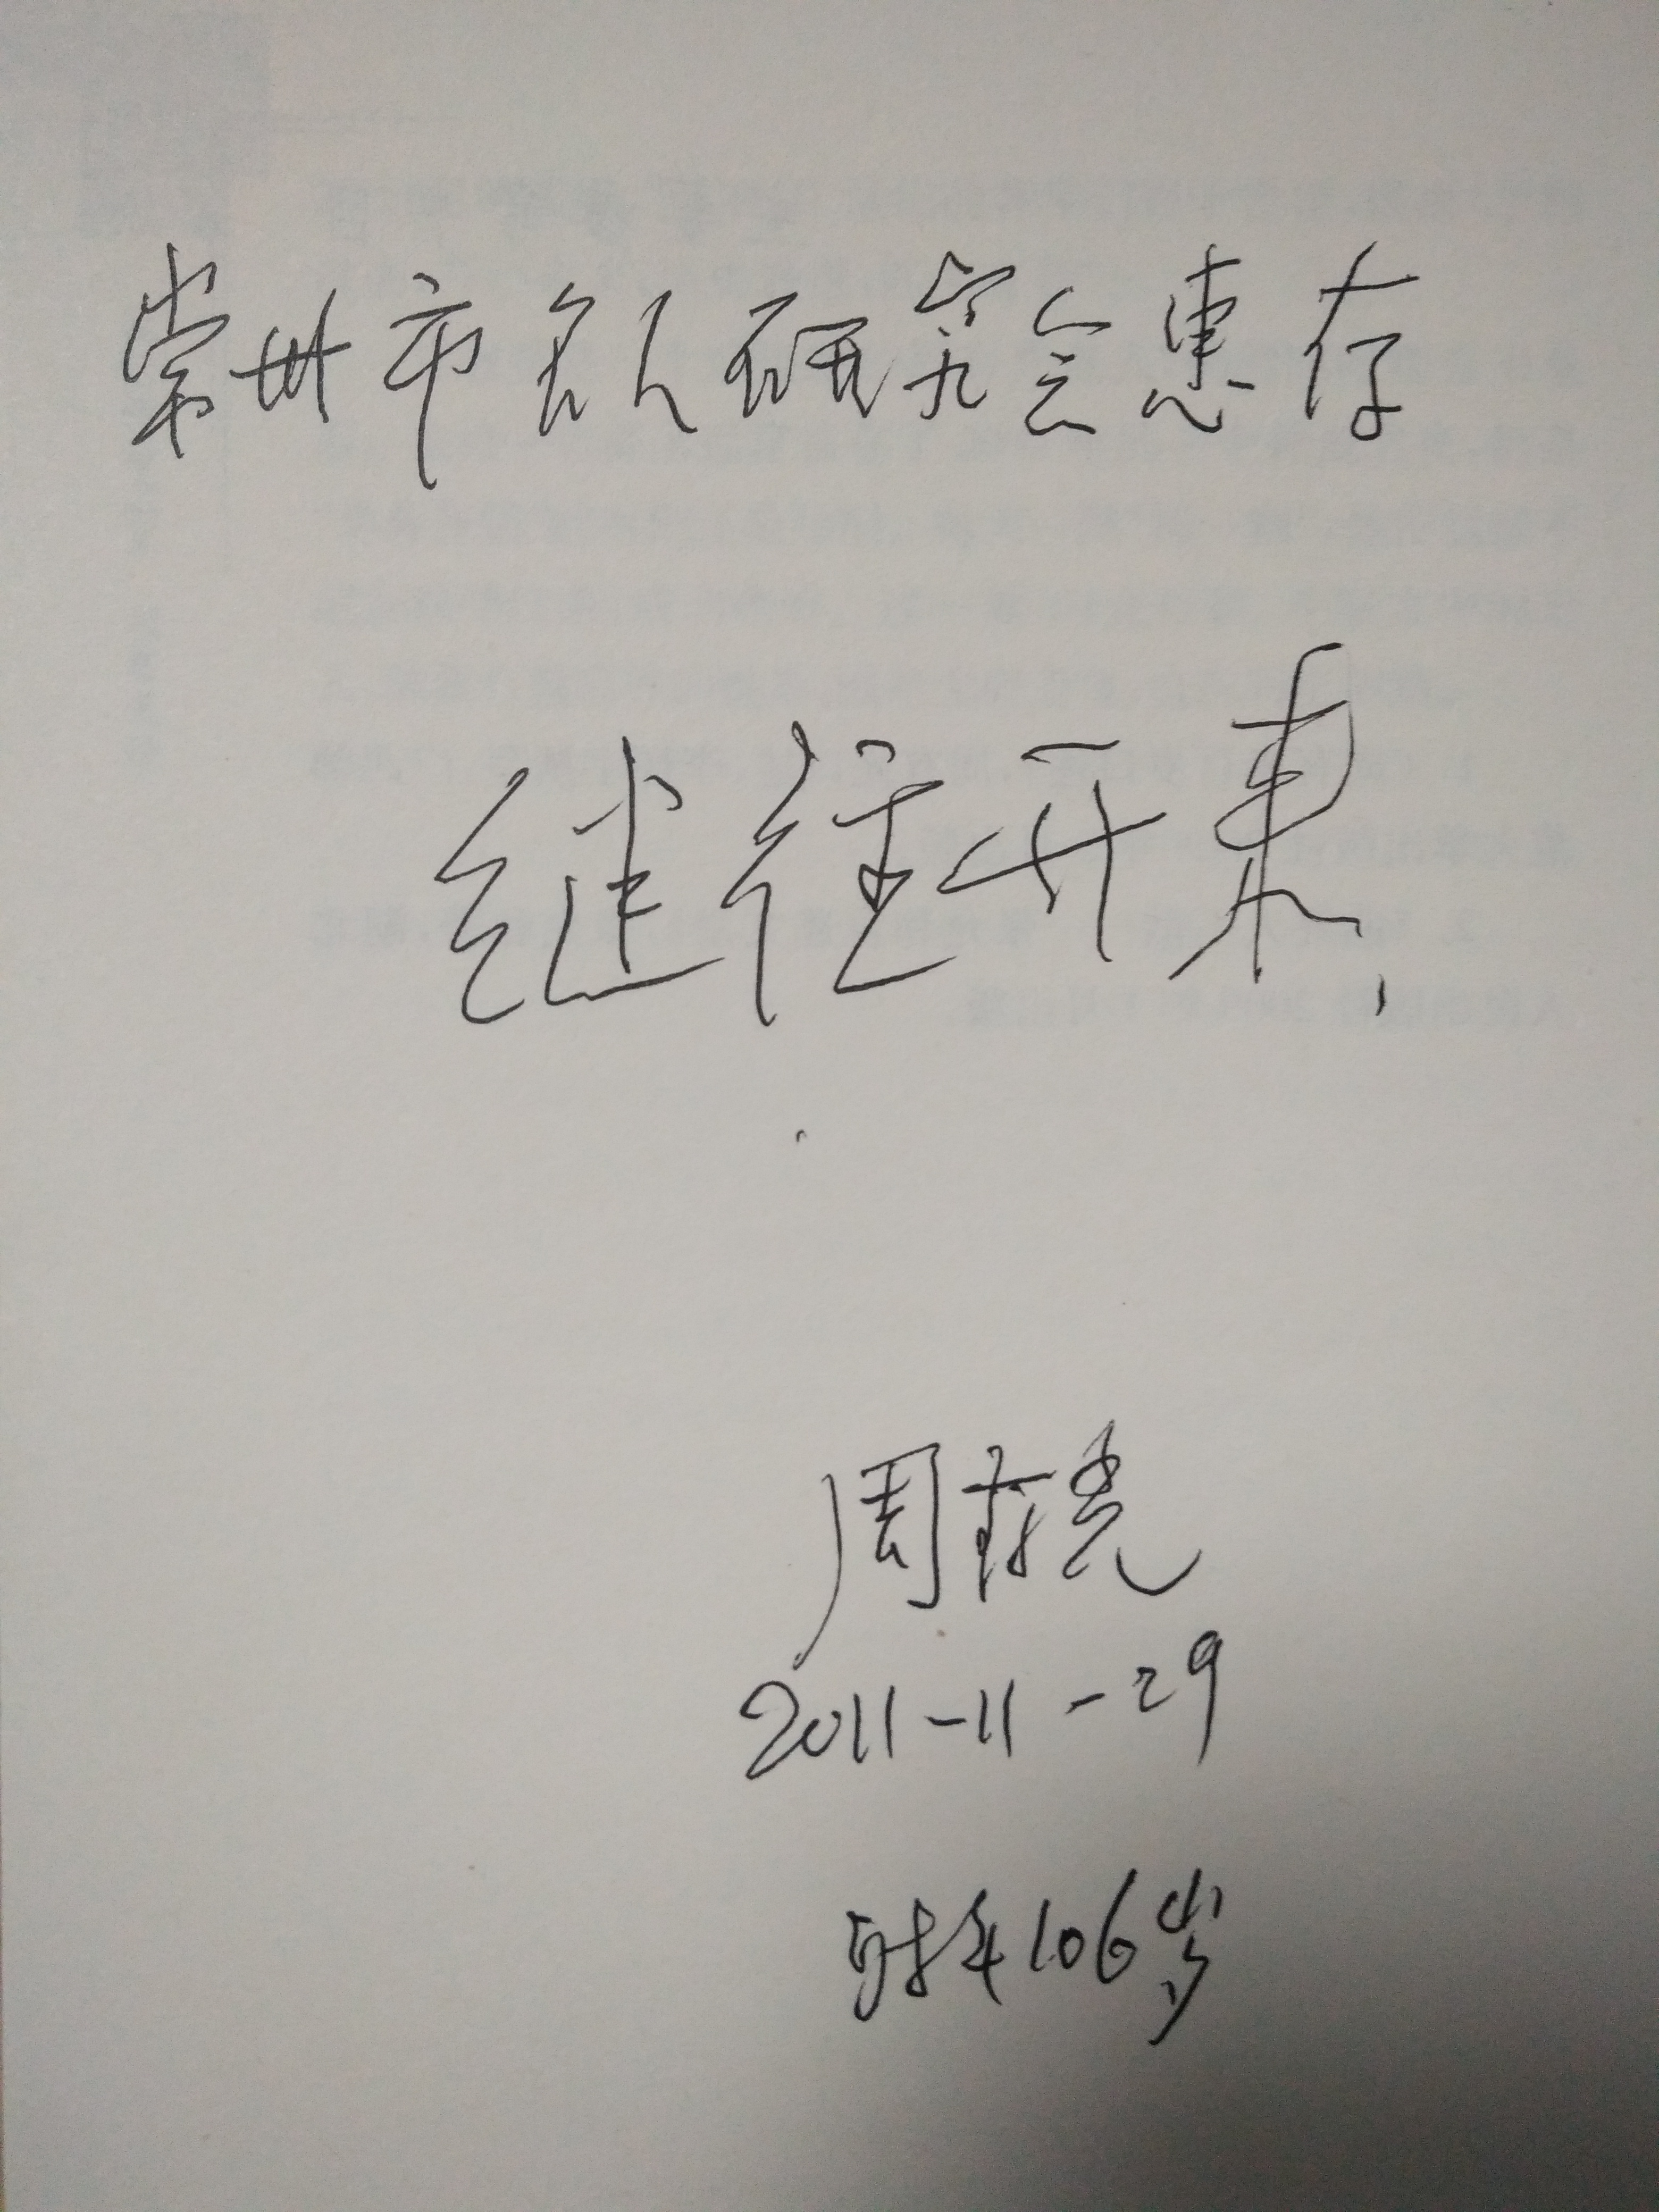 常州市名人研究会惠存
继往开来
周有光
2011-11-29
时年106岁